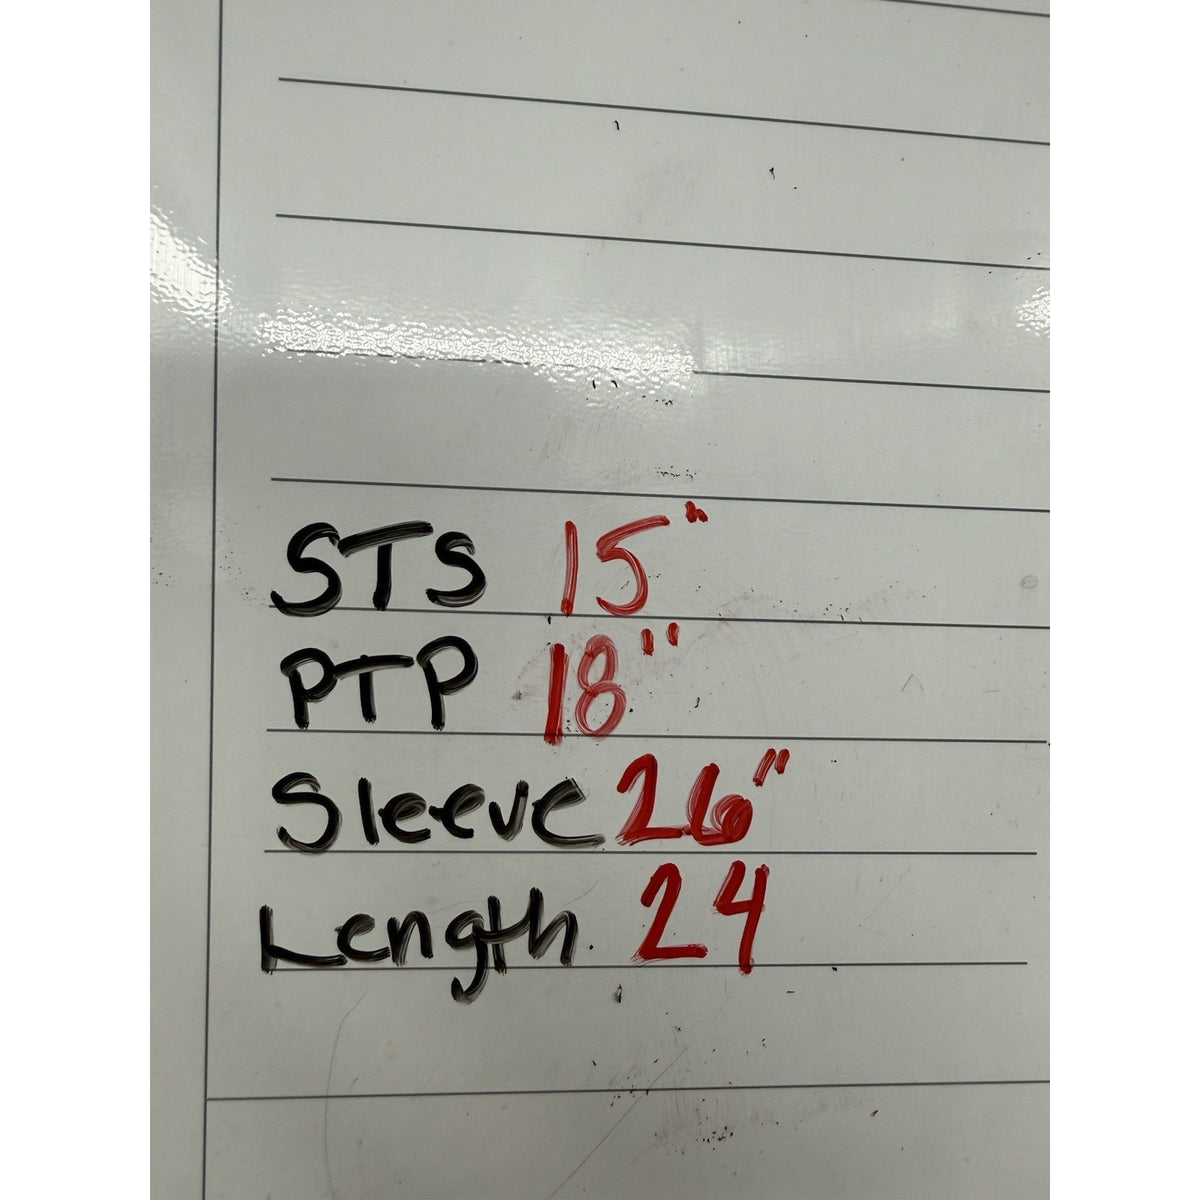 STS 15"
PTP 18"
Sleeve 26"
Length 24